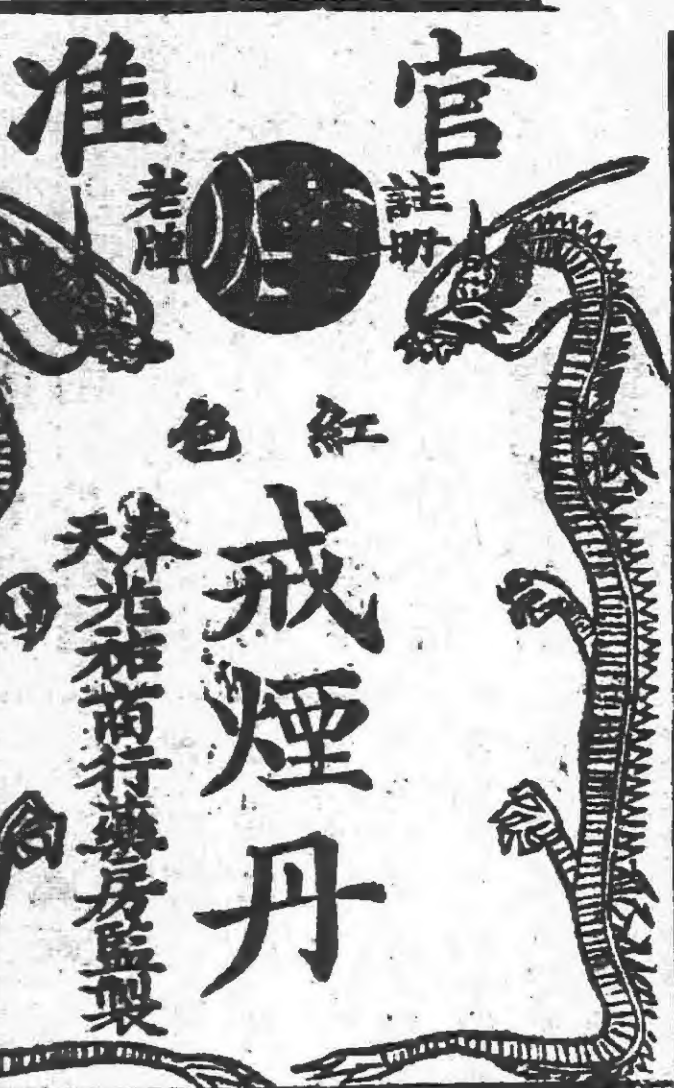 官准
註冊
老牌
紅色
戒煙丹
奉天
光祐商行藥房監製